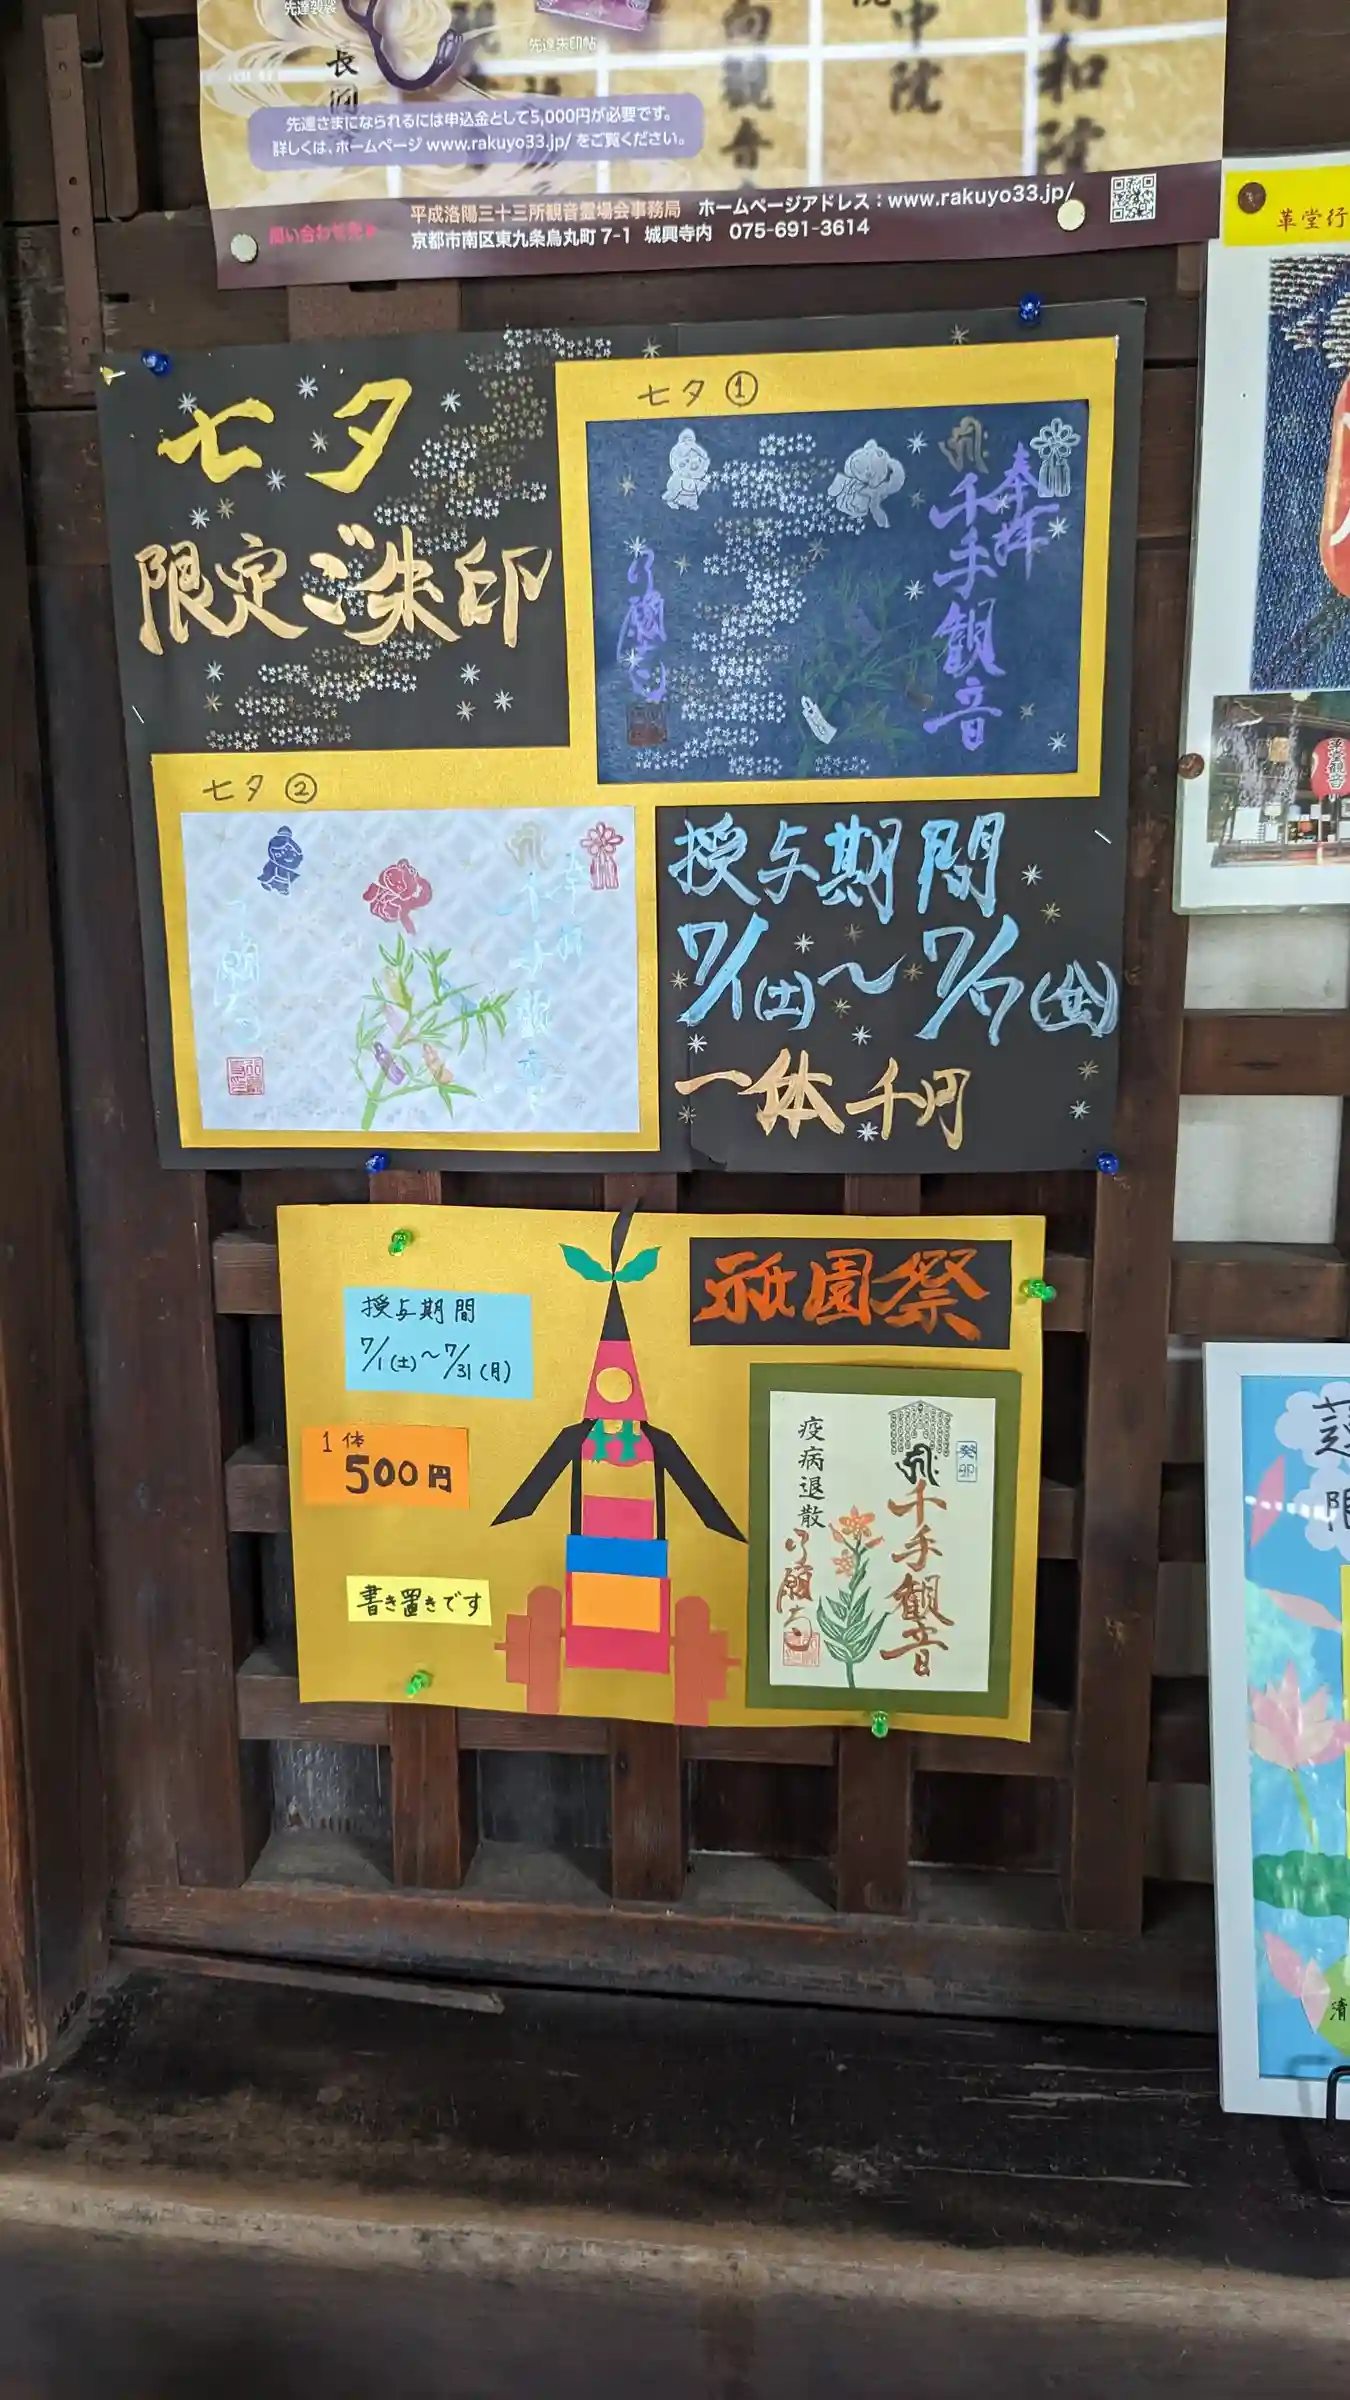 先達製袈裟
先達朱印帖
長圓
向観音
中院
清和院
先達さまになられるには申込金として5,000円が必要です。
詳しくは、ホームページ www.rakuyo33.jp/ をご覧ください。
問い合わせ先
平成洛陽三十三所観音霊場会事務局 ホームページアドレス：www.rakuyo33.jp/
京都市南区東九条烏丸町7-1 城興寺内 075-691-3614
七夕
限定ご朱印
七夕①
奉拝
千手観音
行願寺
七夕②
奉拝
千手観音
行願寺
授与期間
7/1(土)～7/7(金)
一体千円
祇園祭
授与期間
7/1(土)～7/31(月)
1体
500円
書き置きです
癸卯
千手観音
疫病退散
行願寺
革堂行
革堂観音
限
清